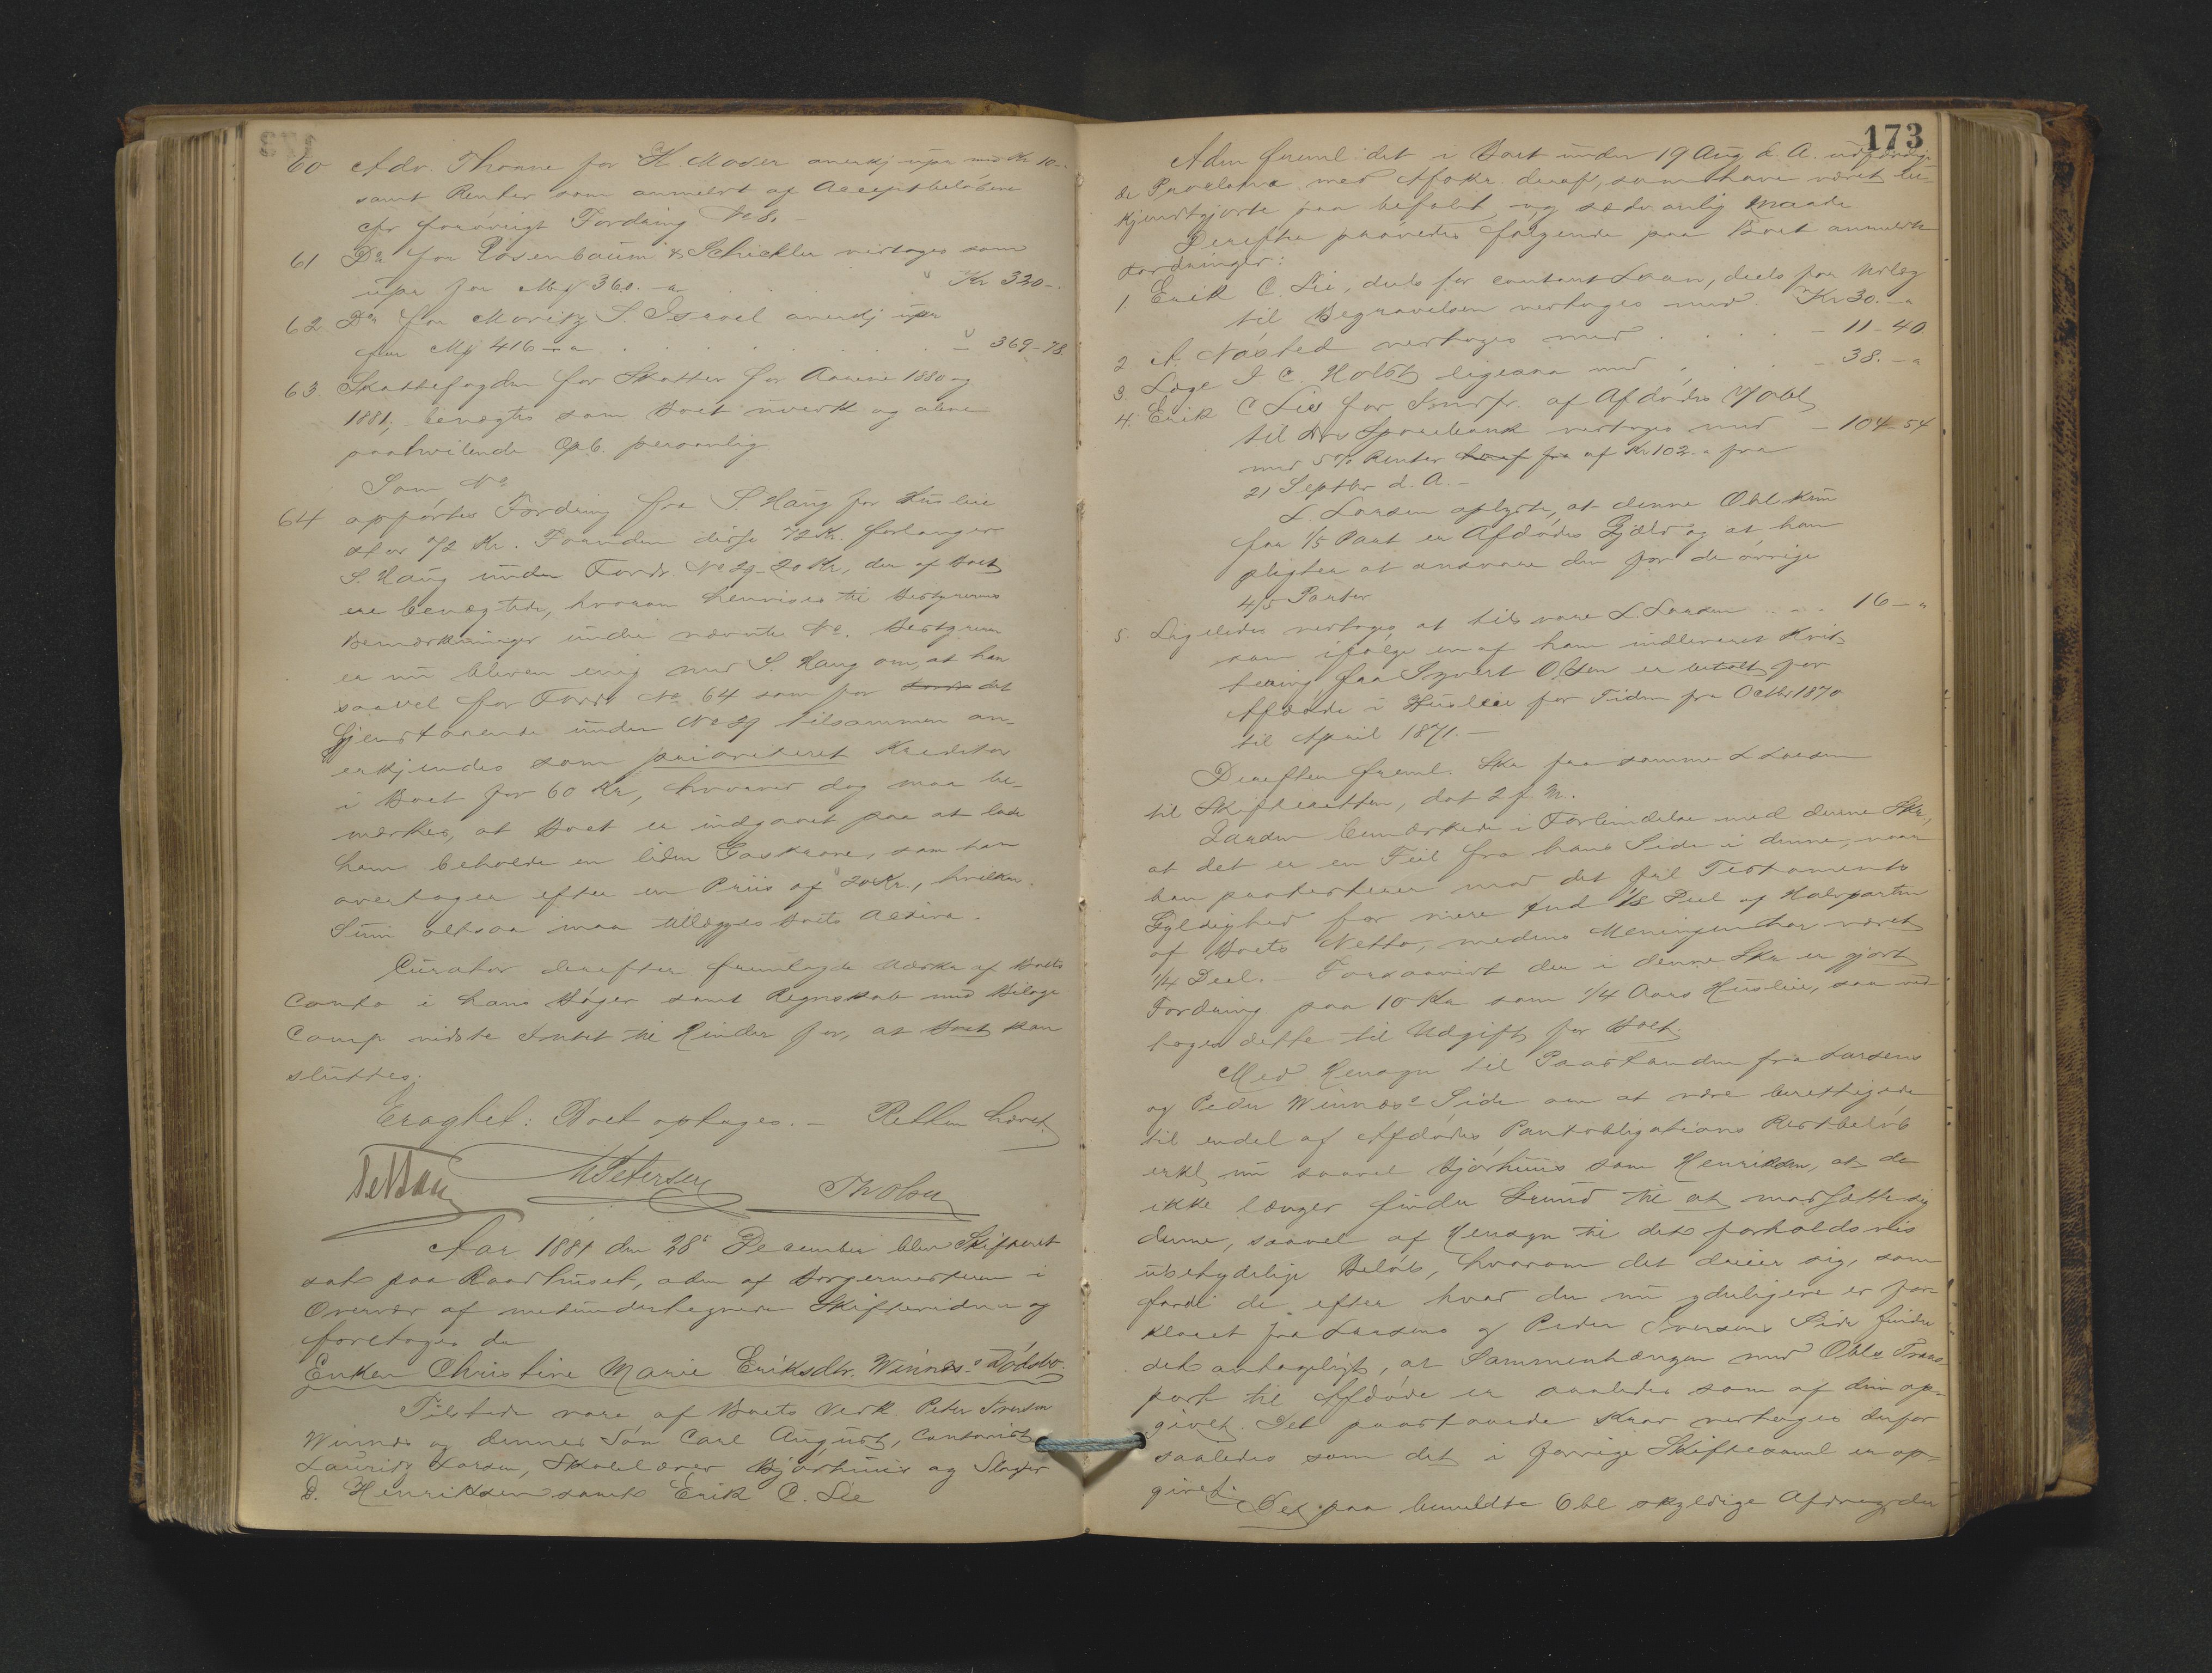 60 Adv. Throne for H. Moser anerkj upr med Kr 10-
samt Renter som anmeldt af Acceptbeløbene
cfr forøvrigt Fordring No 8.
61 Do for Rosenbaum & Schickler vertages som
upr for Mk 360.-a " Kr 320-.
62 Do for Moritz S. Israel anerkj upr
for Mk 416-a - 369-78.
63 Skattefogden for Skatter for Aarene 1880 og
1881, benægtes som Boet uvedk og alene
paahvilende Opb. personlig.
Som No
64 opførtes Fordring fra S. Haug for Husleie
stor 72 Kr. Foruden disse 72 Kr. forlanger
S. Haug under Fordr. No 29 - 20 Kr, der af Boet
ere benægtede, hvorom henvises til Bestyrerens
Bemærkninger under nævnte No. Bestyreren
er nu bleven enig med S. Haug om, at han
saavel for Fordr No 64 som for det
Gjenstaaende under No 29 tilsammen an-
erkjendes som prioriteret Kreditor
i Boet for 60 Kr, hvorved dog maa be-
mærkes, at Boet er indgaaet paa at lade
ham beholde en liden Gaskrone, som han
overtager efter en Priis af 20 Kr., hvilken
Sum altsaa maa tillægges Boets Activa.
Curator derefter fremlagde Udskr af Boets
Conto i hans Bøger samt Regnskab med Bilage
Comp vidste Intet til Hinder for, at Boet kan
sluttes.
Eragtet: Boet optages. - Retten hævet
M Petersen Th Olsen
Aar 1881 den 28de December blev Skifteret
sat paa Raadhuset, adm af Borgermesteren i
Overvær af medundertegnede Skiftevidner og
foretoges da
Enken Christine Marie Eriksdtr. Winnæs' Dødsbo.
Tilstede vare af Boets Vedk. Peder Iversen
Winnæs og dennes Søn Carl August, Contorist
Lauritz Larsen, Skolelærer Bjørhuus og Slagter
D. Henriksen samt Erik C. Lie
173
Adm freml. det i Boet under 19 Aug d. A. udfærdige-
de Proclama med Afskr. deraf, som have været be-
kjendtgjorte paa befalet og sædvanlig Maade.
Derefter prøvedes følgende paa Boet anmeldte
Fordringer:
1. Erik C. Lie, deels for contant Laan, deels for Udlæg
til Begravelsen vertages med Kr 30.-a
2 A. Nøsted vertoges med - 11-40
3. Læge I. C. Holst ligesaa med - 38.-a
4. Erik C Lie for Indfr. af Afdødes Obl
til Sparebank vertoges med - 104-54
med 5% Renter af Kr 102.a fra
21 Septbr d. A.-
L. Larsen oplyste, at denne Obl kun
for 1/5 Part er Afdødes Gjæld og at han
pligter at ansvare den for de øvrige
4/5 Parter
5. Ligeledes vertoges at tilsvare L. Larsen 16-a
som ifølge en af ham indleveret Kvit-
tering fra Syvert Olsen er betalt for
Afdøde i Husleie for Tiden fra Octbr 1870
til April 1871.-
Derefter freml. Skr fra samme L Larsen
til Skifteretten, dat 2 f. M.
Larsen bemærkede i Forbindelse med denne Skr,
at det er en Feil fra hans Side i denne, naar
han protesterer mod det Testaments
Gyldighed for mere end 1/8 Deel af Halvparten
af Boets Netto, medens Meningen har været
1/4 Deel.- Forsaavidt der i denne Skr er gjort
Fordring paa 10 Kr som 1/4 Aars Husleie, saa ved-
toges dette til Udgift for Boet.
Med Hensyn til Paastanden fra Larsens
og Peder Winnæs's Side om at være berettigede
til endel af Afdødes Pantobligations Restbeløb
erkl nu saavel Bjørhuus som Henriksen, at de
ikke længer finder Grund til at modsætte sig
denne, saavel af Hensyn til det forholdsvis
ubetydelige Beløb, hvorom det dreier sig, som
fordi de efter hvad der nu ydeligere er for-
klaret fra Larsens og Peder Iversens Side finder
det antageligt, at Sammenhængen med Obls Trans-
port til Afdøde er saaledes som af dem op-
givet. Det paastaaede Krav vertoges derfor
saaledes som det i forrige Skiftesaml er op-
givet.
Det paa bemeldte Obl skyldige Afdrag, der